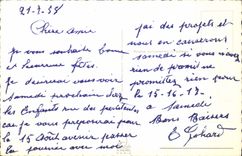 21-7-55
Chère amie
Je vous souhaite bonne
et heureuse fête.
Je désirerai vous voir
samedi prochain chez
les Enfants rue des pénitents
car je vous proposerai pour
le 15 Août venir passer
la journée avec moi
j'ai des projets et
nous en causerons
samedi si vous avez
rien de promis ne
promettez rien pour
le 15-16-17-
à Samedi
Bons Baisers
E Gohard